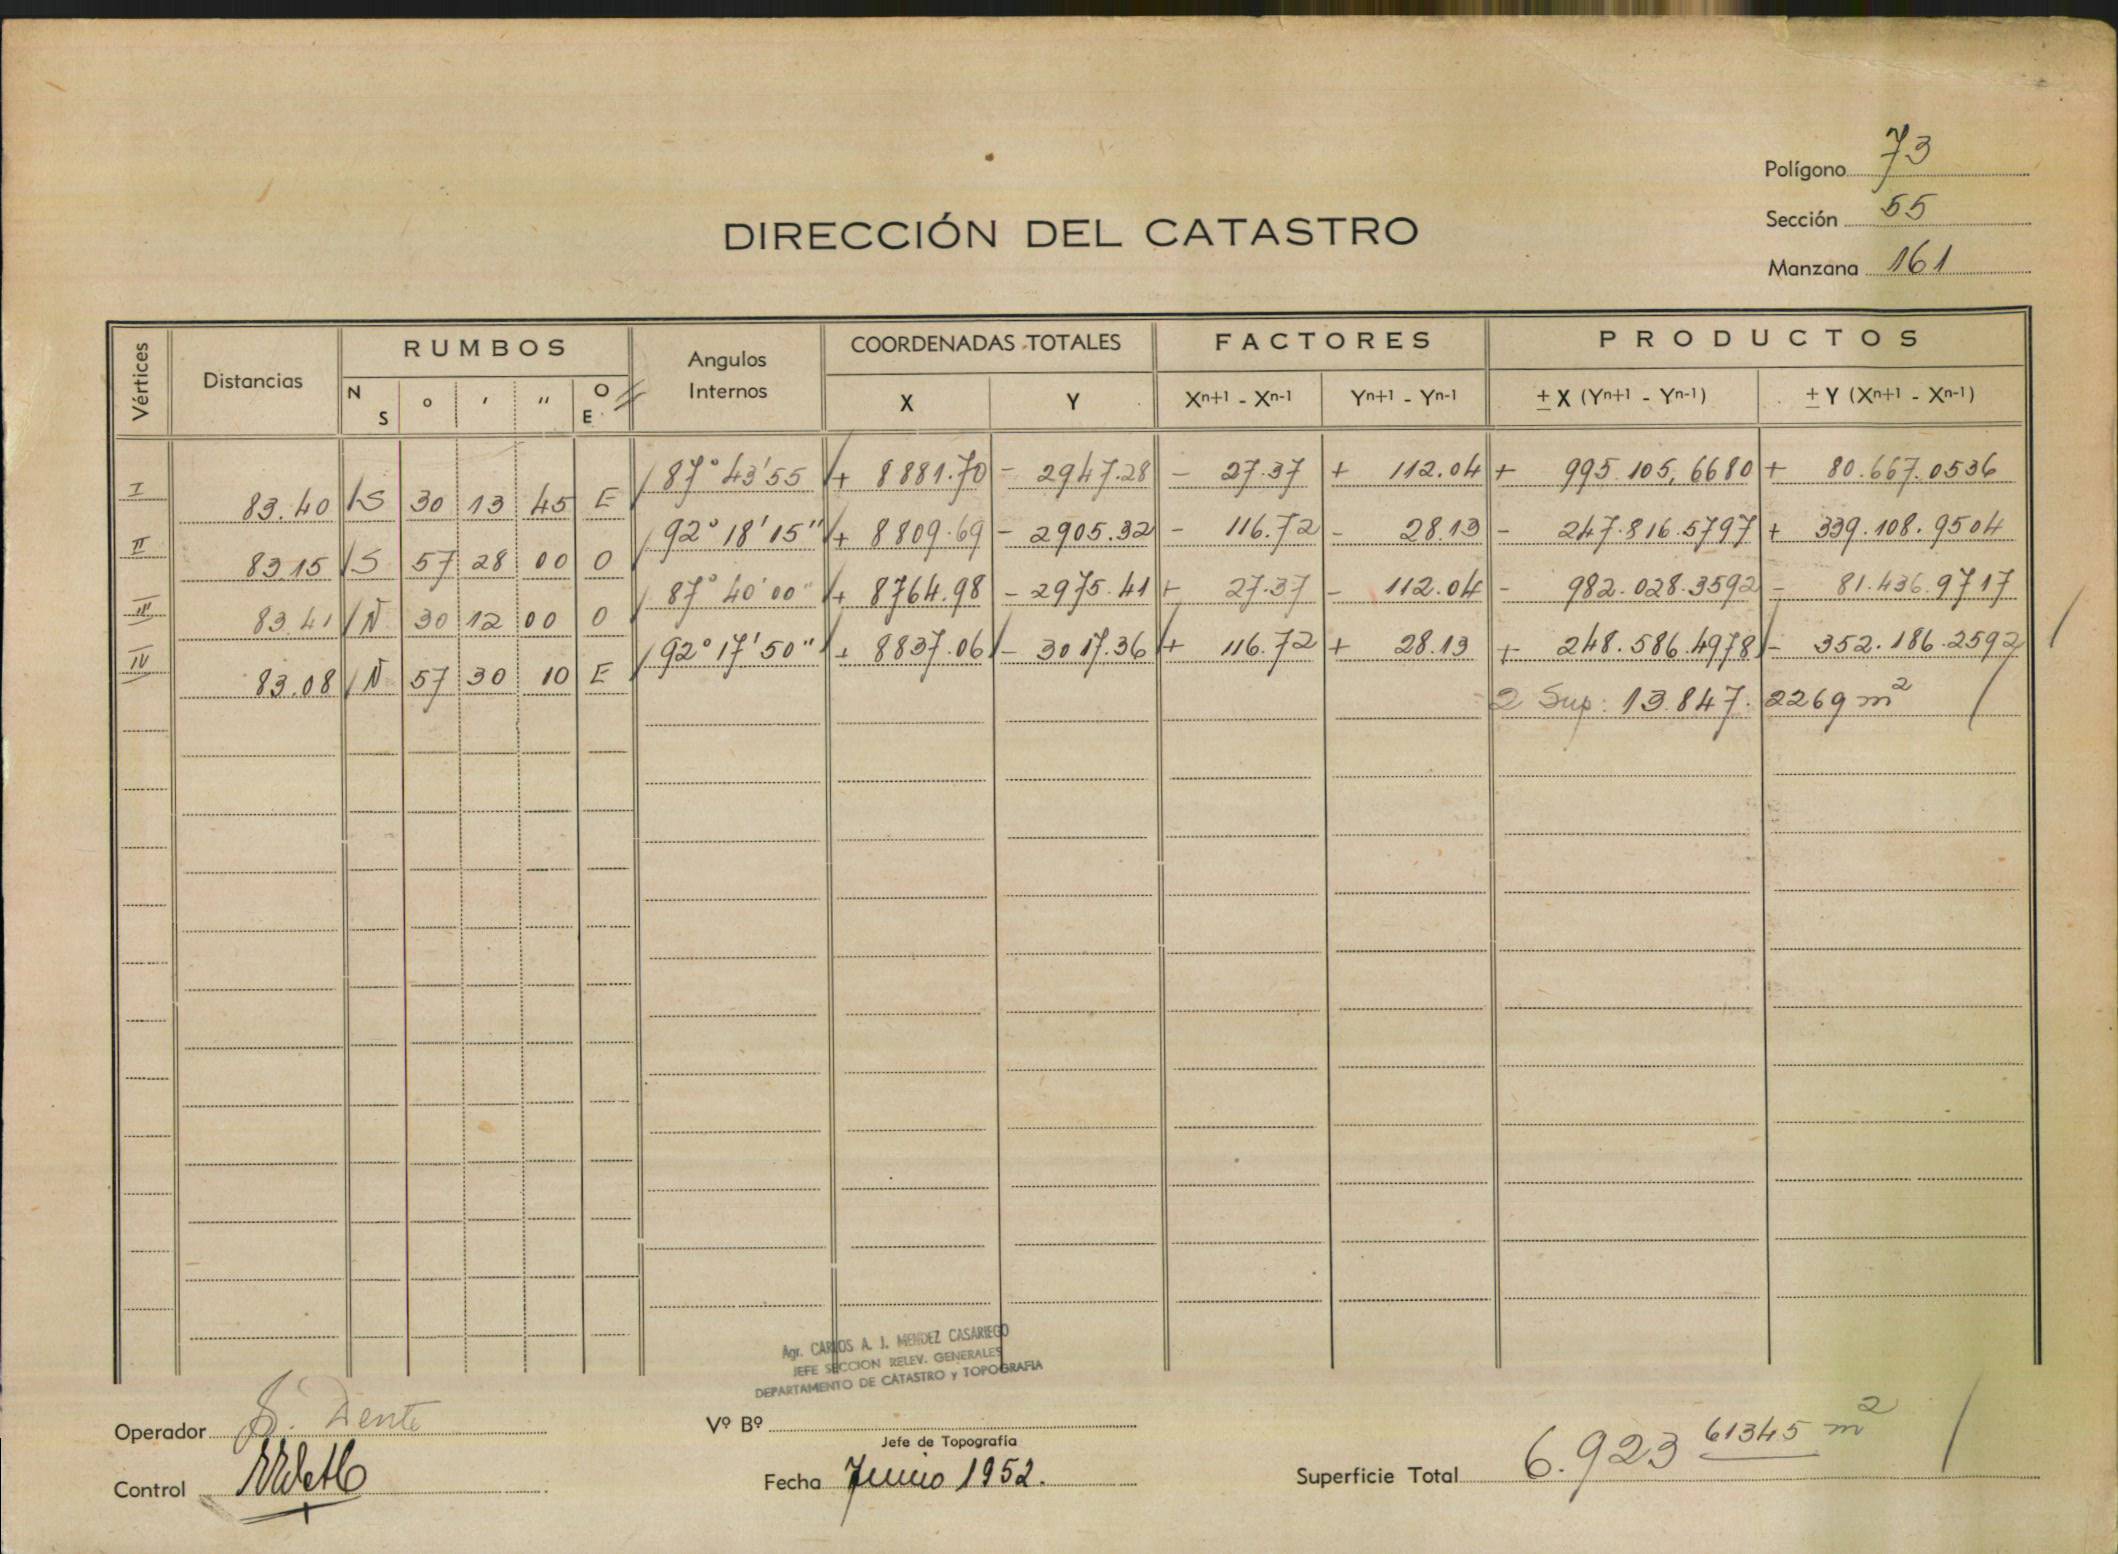 Polígono 73
Sección 55
Manzana 161
DIRECCIÓN DEL CATASTRO
Vértices Distancias RUMBOS Angulos Internos COORDENADAS TOTALES FACTORES PRODUCTOS
N S ° ' " O E X Y Xn+1 - Xn-1 Yn+1 - Yn-1 ± X (Yn+1 - Yn-1) ± Y (Xn+1 - Xn-1)
I 87° 43' 55 + 8881.70 - 2947.28 - 27.37 + 112.04 + 995.105,6680 + 80.667.0536
83.40 S 30 13 45 E
II 92° 18' 15" + 8809.69 - 2905.32 - 116.72 - 28.13 - 247.816.5797 + 339.108.9504
83.15 S 57 28 00 O
III 87° 40' 00" + 8764.98 - 2975.41 + 27.37 - 112.04 - 982.028.3592 - 81.436.9717
83.41 N 30 12 00 O
IV 92° 17' 50" + 8837.06 - 3017.36 + 116.72 + 28.13 + 248.586.4978 - 352.186.2592
83.08 N 57 30 10 E
2 Sup: 13.847.2269 m²
Agr. CARLOS A. J. MENDEZ CASARIEGO
JEFE SECCION RELEV. GENERALES
DEPARTAMENTO DE CATASTRO y TOPOGRAFIA
Operador Dente
Vº Bº
Jefe de Topografía
Control
Fecha Junio 1952.
Superficie Total 6.923 61345 m²